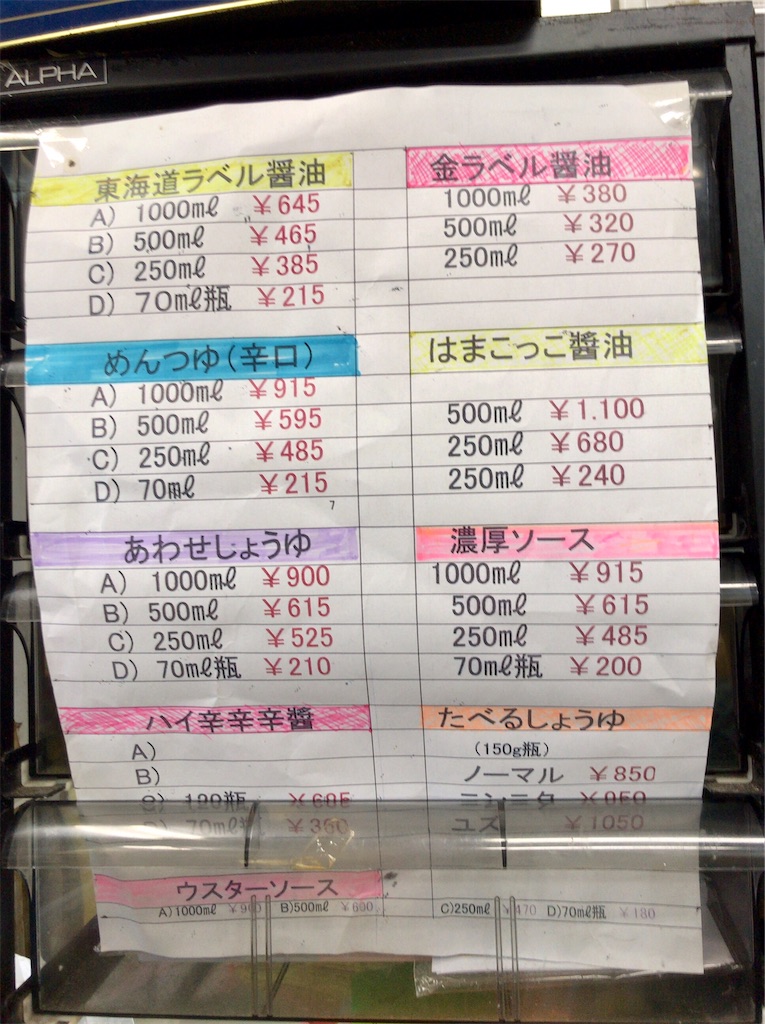 ALPHA
東海道ラベル醤油
A) 1000㎖ ￥645
B) 500㎖ ￥465
C) 250㎖ ￥385
D) 70㎖瓶 ￥215
金ラベル醤油
1000㎖ ￥380
500㎖ ￥320
250㎖ ￥270
めんつゆ(辛口)
A) 1000㎖ ￥915
B) 500㎖ ￥595
C) 250㎖ ￥485
D) 70㎖ ￥215
7
はまこっこ醬油
500㎖ ￥1.100
250㎖ ￥680
250㎖ ￥240
あわせしょうゆ
A) 1000㎖ ￥900
B) 500㎖ ￥615
C) 250㎖ ￥525
D) 70㎖瓶 ￥210
濃厚ソース
1000㎖ ￥915
500㎖ ￥615
250㎖ ￥485
70㎖瓶 ￥200
ハイ辛辛辛醬
A)
B)
120瓶
D) 70㎖瓶 ￥360
たべるしょうゆ
(150g瓶)
ノーマル ￥850
ユズ ￥1050
ウスターソース
A)1000㎖ B)500㎖ ￥600 C)250㎖ ￥470 D)70㎖瓶 ￥180